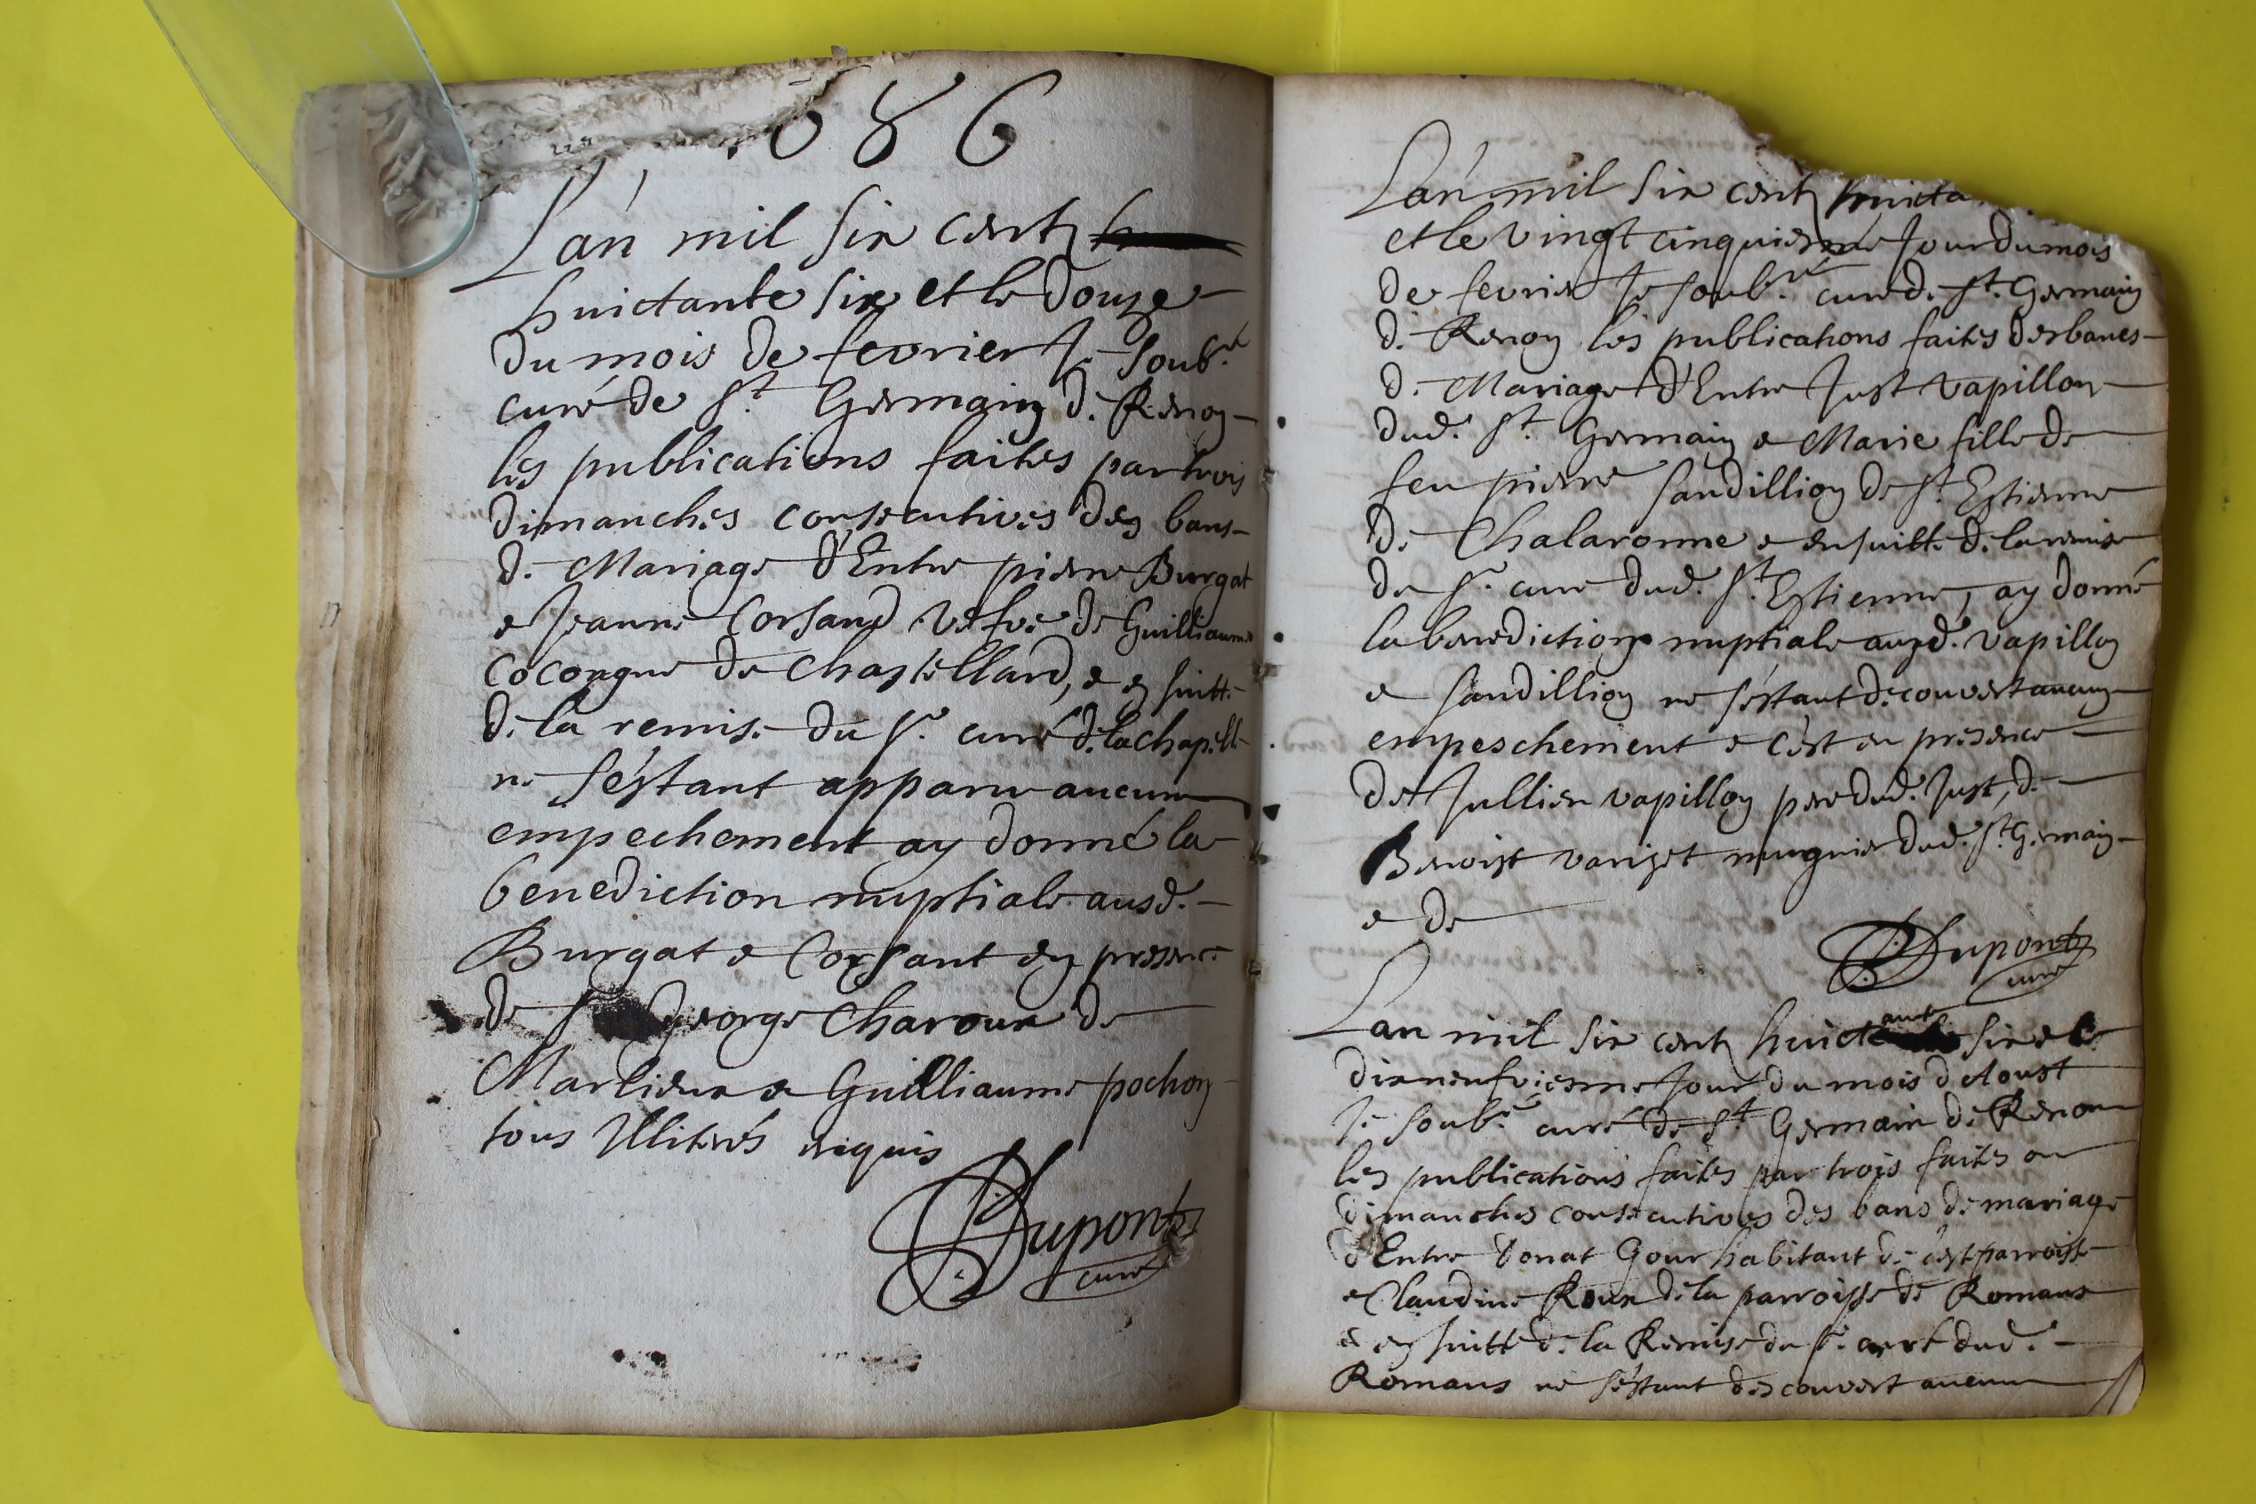 686
L'an mil six cents
huictante six et le douze
du mois de febvrier Je soub.né
curé de St. Germain de Renon
les publications faites par trois
dimanches consecutives des bans
de Mariage d'Entre pierre Burgat
e Jeanne Corsand vefve de Guilliaume
Cocogne de Chastellard, e en suitte
de la remise du Sr. curé de la Chapelle
ne s'estant apparu aucun
empechement ay donné la
benediction nuptiale ausd.
Burgat e Corsant en presence
de Sr George Charoux de
Marlieux e Guilliaume pochon
tous Illiterés enquis
Dupont
curé
L'an mil six cents huicta
et le vingt cinquiesme Jour du mois
de fevrier Je soub.né curé de St. Germain
de Renon les publications faites des bancs
de Mariage d'Entre Just vapillon
dud. St. Germain e Marie fille de
feu pierre Sandillion de St. Estienne
de Chalaronne e ensuitte de la remise
du Sr. curé dud. St. Estienne, ay donné
la benediction nuptiale auxd. vapillon
e Sandillion ne s'estant decouvert aucun
empeschement e c'est en presence
de Jullien vapillon pere dud. Just, de
Benoist varizet mugnier dud. St. Germain
e de
Dupont
curé
L'an mil six cents huictante six e le
dixneufviesme Jour du mois d'Aoust
Je soub.né curé de St Germain de Renon
les publications faites par trois faites ou
dimanches consecutives des bans de mariage
d'Entre Donat Gour habitant de cest parroisse
e Claudine Roux de la parroisse de Romans
e en suitte de la Remise du Sr. curé dud.
Romans ne s'estant descouvert aucun